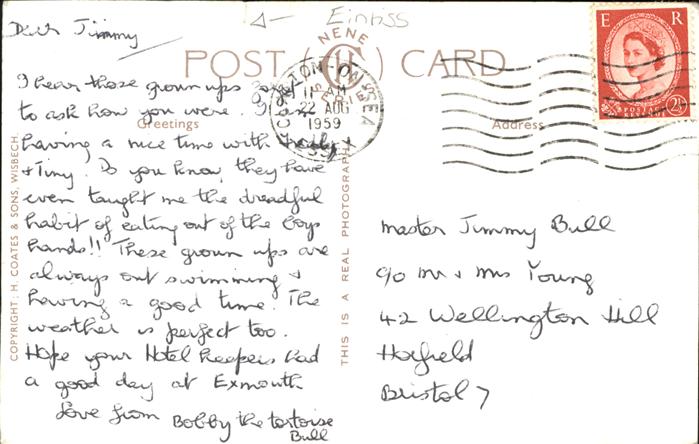 Einriss
Dear Jimmy
NENE
POST CARD
I hear those grown ups
to ask how you were.
Greetings
having a nice time with
& Tiny. Do you know, they have
even taught me the dreadful
habit of eating out of the boys
hands!! These grown ups are
always out swimming &
having a good time. The
weather is perfect too.
Hope your Hotel keepers had
a good day at Exmouth.
Love from Bobby the tortoise
Bull
COPYRIGHT: H. COATES & SONS, WISBECH.
THIS IS A REAL PHOTOGRAPH
CLACTON-ON-SEA
11 AM
22 AUG
1959
ESSEX
E R
POSTAGE
2½
Address
Master Jimmy Bull
c/o Mr & Mrs Young
42 Wellington Hill
Horfield
Bristol 7